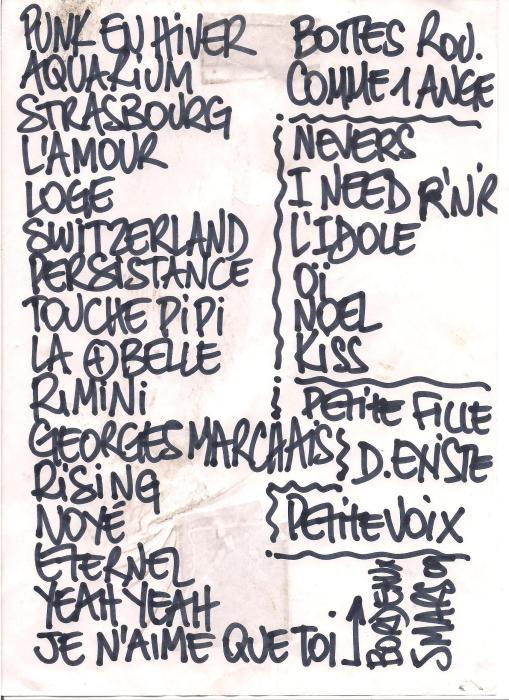 PUNK EN HIVER
AQUARIUM
STRASBOURG
L'AMOUR
LOGE
SWITZERLAND
PERSISTANCE
TOUCHE PiPi
LA + BELLE
RiMiNi
GEORGES MARCHAIS
RiSiNG
NOYÉ
ETERNEL
YEAH YEAH
JE N'AIME QUE TOi
BOTTES ROU.
COMME 1 ANGE
NEVERS
I NEED R'N'R
L'IDOLE
OÏ
NOEL
KiSS
PETiTE FiLLE
D.EXiSTE
PETiTE VOiX
BORDEAUX
MARS 07